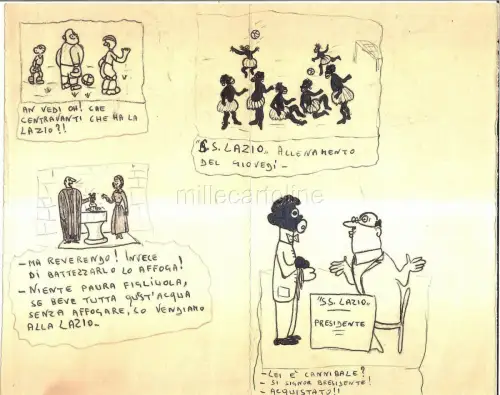 AN VEDI OH! CHE
CENTRAVANTI CHE HA LA
LAZIO?!
"S.S. LAZIO" ALLENAMENTO
DEL GIOVEDÌ -
millecartoline
- MA REVERENDO! INVECE
DI BATTEZZARLO LO AFFOGA!
- NIENTE PAURA FIGLIUOLA,
SE BEVE TUTTA QUST'ACQUA
SENZA AFFOGARE, LO VENDIAMO
ALLA LAZIO -
"S.S. LAZIO"
PRESIDENTE
- LEI È CANNIBALE?
- SI SIGNOR PRESIDENTE!
- ACQUISTATO!!